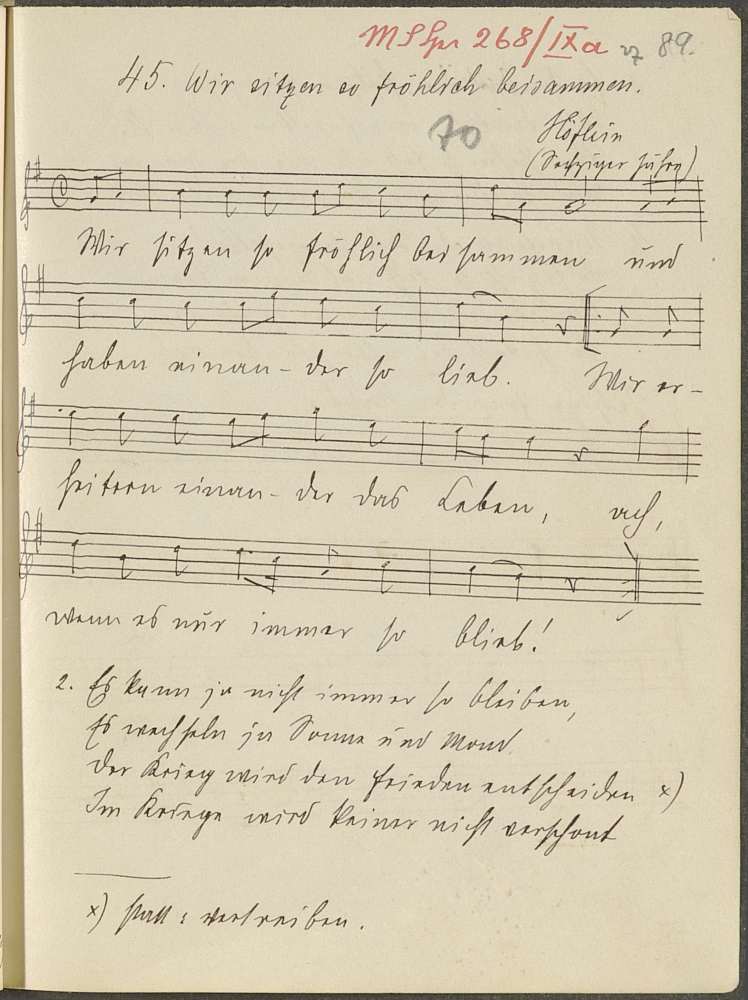 268/IXa 89.
45. Wir sitzen so fröhlich beisammen.
70 Höflein
(Sechziger Jahre)
Wir sitzen so fröhlich beisammen und
haben einan- der so lieb. Wir er-
heitern einan- der das Leben, ach,
wenn es nur immer so blieb!
2. Es kann ja nicht immer so bleiben,
Es wechseln ja Sonne und Mond.
Der Krieg wird den Frieden entscheiden x)
Im Kriege wird keiner nicht verschont
x) statt: vertreiben.